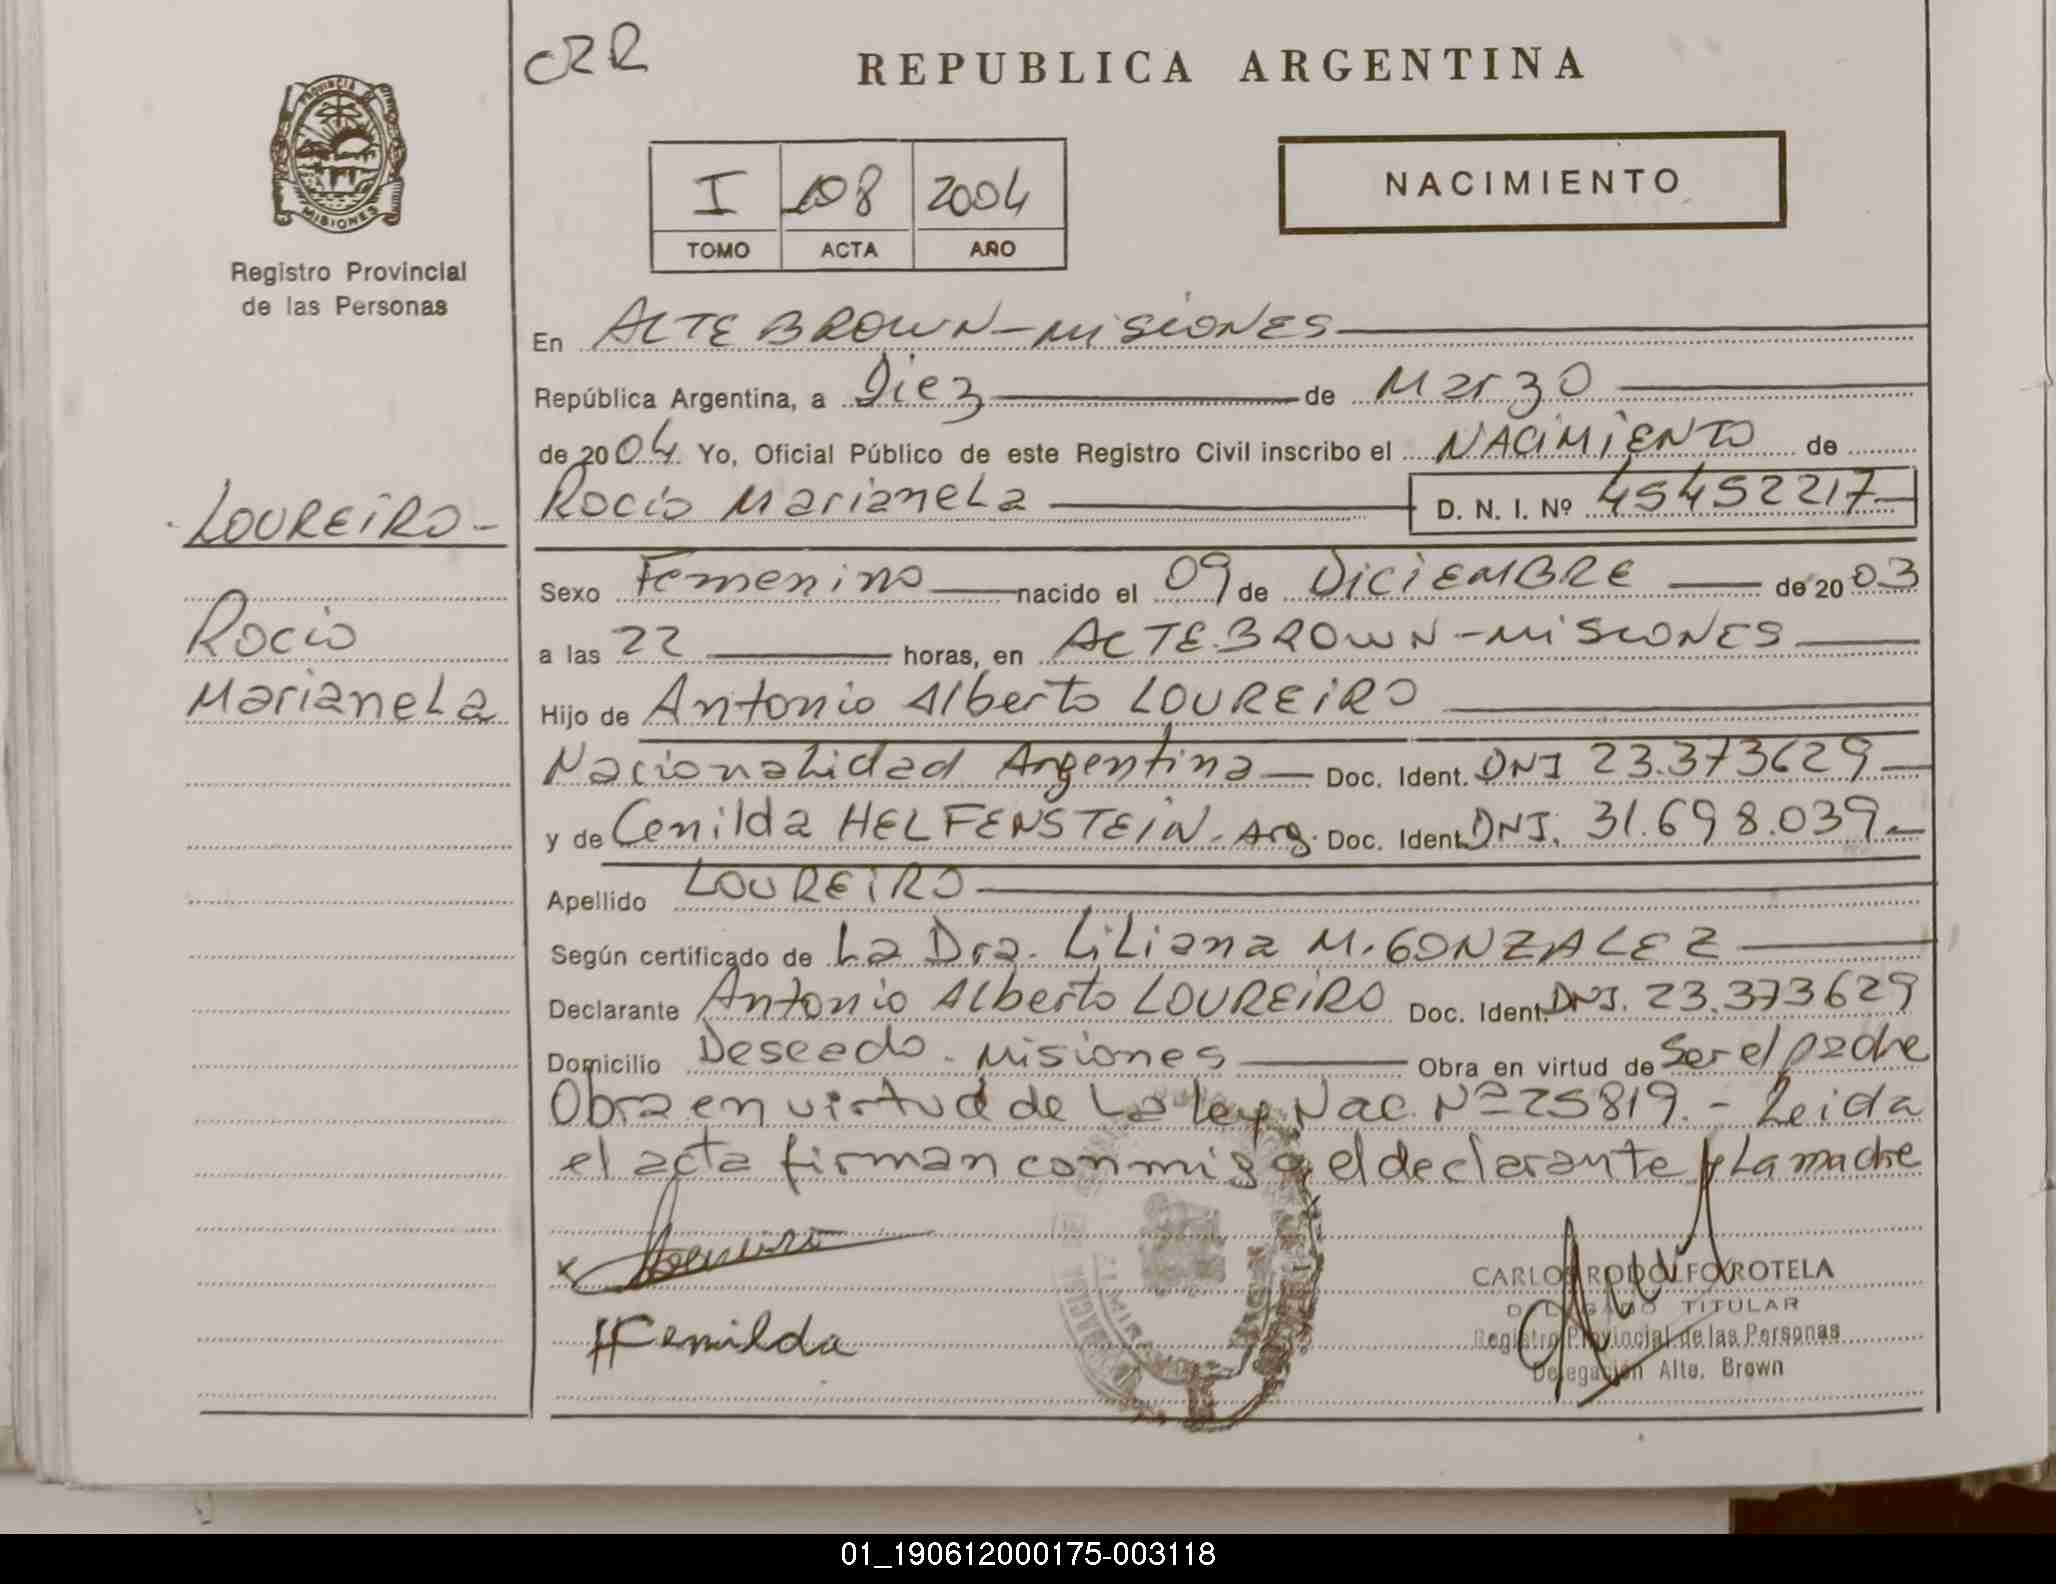 CRR
REPUBLICA ARGENTINA
PROVINCIA DE
MISIONES
Registro Provincial
de las Personas
I 108 2004
TOMO ACTA AÑO
NACIMIENTO
En ALTE BROWN - MISIONES
República Argentina, a Diez de Marzo
de 2004 Yo, Oficial Público de este Registro Civil inscribo el NACIMIENTO de
Rocio Marianela D. N. I. Nº 45452217
LOUREIRO -
Sexo Femenino nacido el 09 de DICIEMBRE de 2003
Rocio
a las 22 horas, en ALTE. BROWN - MISIONES
Marianela
Hijo de Antonio Alberto LOUREIRO
Nacionalidad Argentina Doc. Ident. DNI 23.373629
y de Cenilda HELFENSTEIN. Arg. Doc. Ident. DNI. 31.698.039
Apellido LOUREIRO
Según certificado de La Dra. Liliana M. GONZALEZ
Declarante Antonio Alberto LOUREIRO Doc. Ident. DNI. 23.373629
Domicilio Deseado. Misiones Obra en virtud de Ser el padre
Obra en virtud de La ley Nac. Nº 25819. - Leida
el acta firman conmigo el declarante y La madre
H Cenilda
CARLOS RODOLFO ROTELA
DELEGADO TITULAR
Registro Provincial de las Personas
Delegación Alte. Brown
01_190612000175-003118